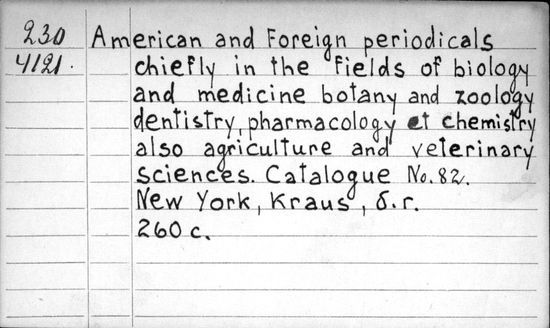 230 American and Foreign periodicals
4121. chiefly in the fields of biology
and medicine botany and zoology
dentistry, pharmacology et chemistry
also agriculture and veterinary
sciences. Catalogue No. 82.
New York, Kraus, б.г.
260 c.